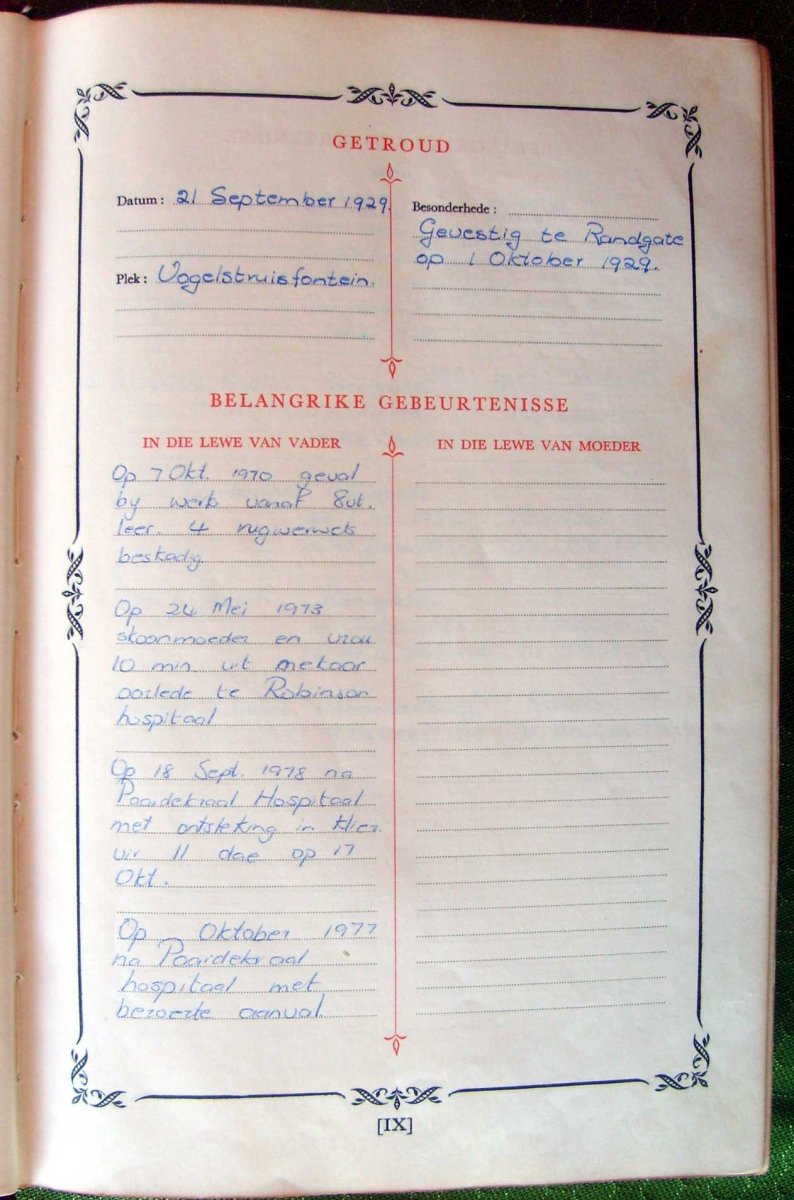 GETROUD
Datum : 21 September 1929.
Plek : Vogelstruisfontein.
Besonderhede :
Gevestig te Randgate
op 1 Oktober 1929.
BELANGRIKE GEBEURTENISSE
IN DIE LEWE VAN VADER
Op 7 Okt. 1970 geval
by werk vanaf 8vt.
leer. 4 rugwerwels
beskadig
Op 24 Mei 1973
skoonmoeder en vrou
10 min uit mekaar
oorlede te Robinson
hospitaal
Op 18 Sept. 1978 na
Paardekraal Hospitaal
met ontsteking in
vir 11 dae op 17
Okt.
Op Oktober 1977
na Paardekraal
hospitaal met
beroerte aanval.
IN DIE LEWE VAN MOEDER
[IX]